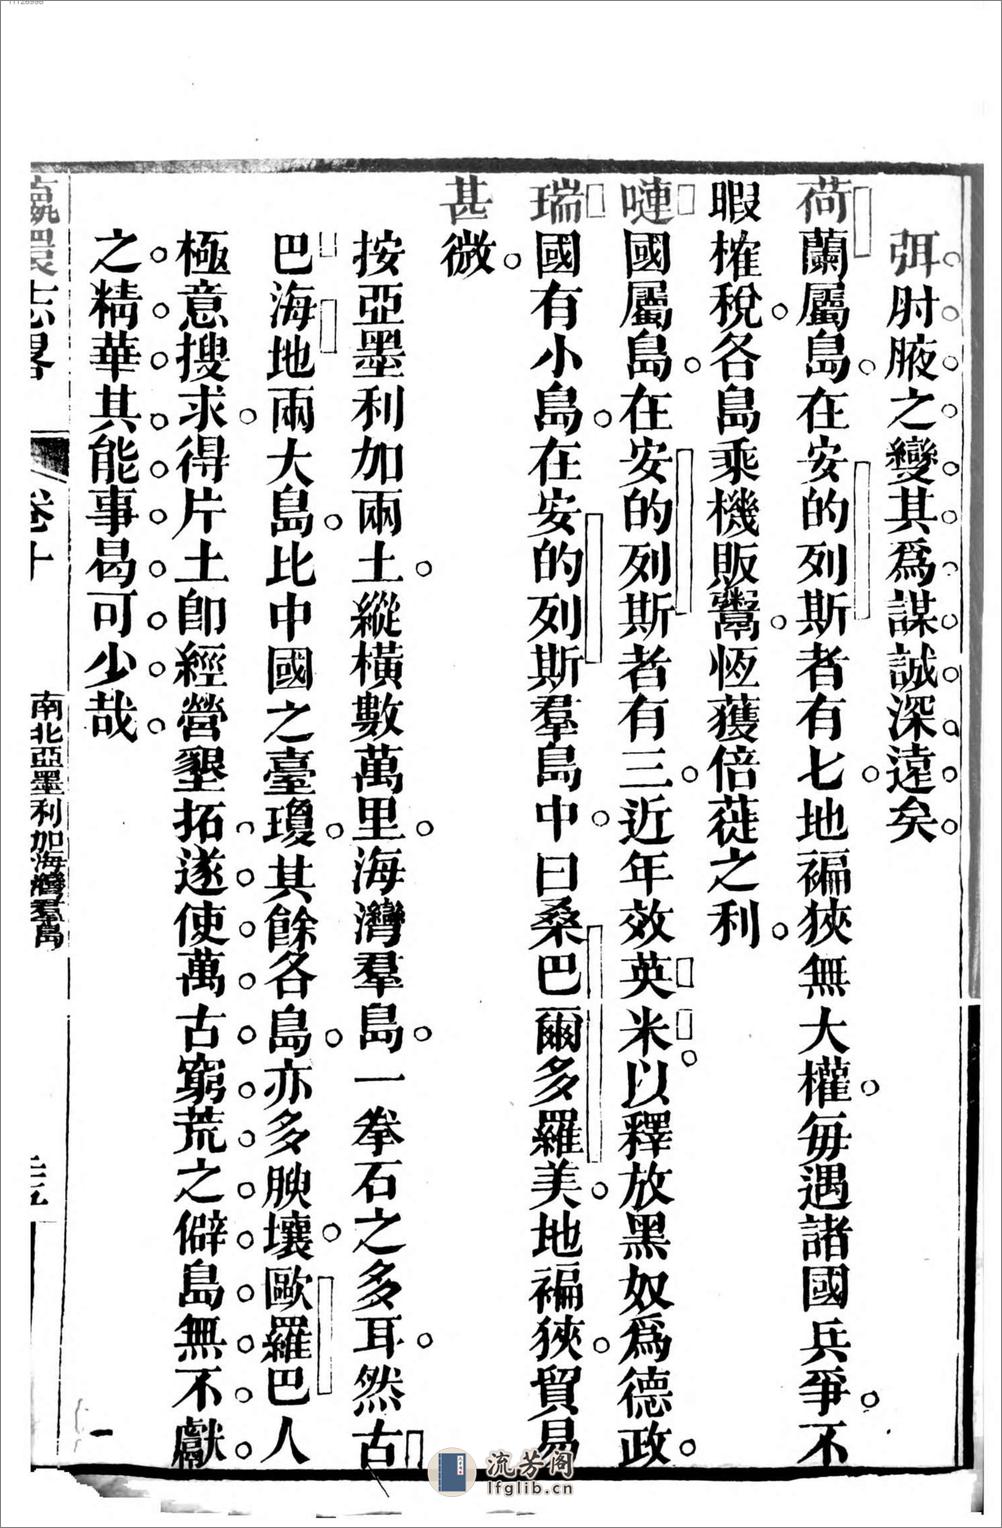 弭肘腋之變其爲謀誠深遠矣
荷蘭屬島在安的列斯者有七地褊狹無大權每遇諸國兵爭不
暇榷稅各島乘機販鬻恆獲倍蓰之利
嗹國屬島在安的列斯者有三近年效英米以釋放黑奴爲德政
瑞國有小島在安的列斯羣島中曰桑巴爾多羅美地褊狹貿易
甚微
按亞墨利加兩土縱橫數萬里海灣羣島一拳石之多耳然古
巴海地兩大島比中國之臺瓊其餘各島亦多腴壤歐羅巴人
極意搜求得片土卽經營墾拓遂使萬古窮荒之僻島無不獻
之精華其能事曷可少哉
瀛環志畧
卷十
南北亞墨利加海灣羣島
流芳阁
lfglib.cn